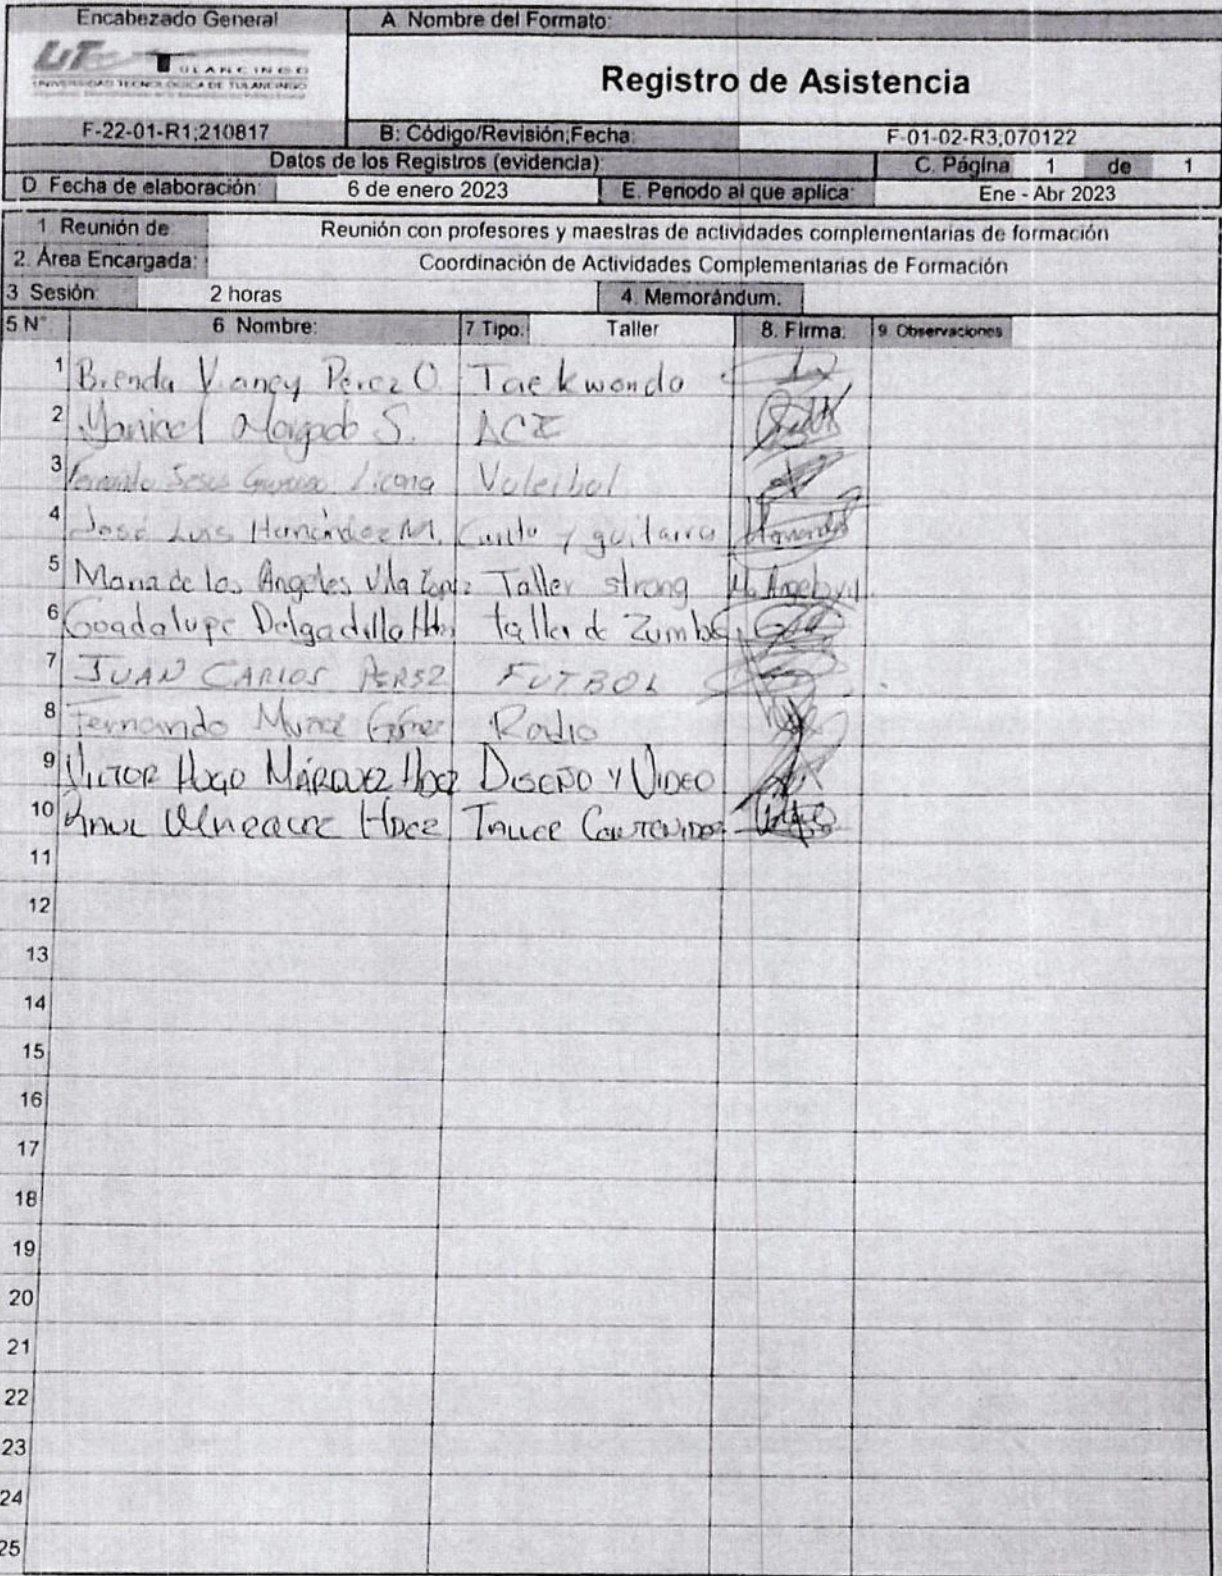 Encabezado General
A. Nombre del Formato:
UT TULANCINGO
UNIVERSIDAD TECNOLÓGICA DE TULANCINGO
Registro de Asistencia
F-22-01-R1;210817
B: Código/Revisión;Fecha:
F-01-02-R3,070122
Datos de los Registros (evidencia):
C. Página 1 de 1
D. Fecha de elaboración: 6 de enero 2023
E. Periodo al que aplica: Ene - Abr 2023
1 Reunión de Reunión con profesores y maestras de actividades complementarias de formación
2. Área Encargada: Coordinación de Actividades Complementarias de Formación
3 Sesión: 2 horas 4. Memorándum:
5 N° 6 Nombre: 7 Tipo: Taller 8. Firma: 9. Observaciones
1 Brenda Vaney Perez O. Taekwondo
2 Morgado S. ACE
3 Licona Voleibol
4 José Luis Hernández M. Canto y guitarra Hernández
5 Maria de los Angeles Vila Taller strong Ma Angeles
6 Guadalupe Delgadillo Hdz taller de Zumba
7 JUAN CARLOS PEREZ FUTBOL
8 Fernando Radio
9 VICTOR HUGO MÁRQUEZ HDEZ DISEÑO Y VIDEO
10 HDEZ TALLER CONTENIDOS
11
12
13
14
15
16
17
18
19
20
21
22
23
24
25